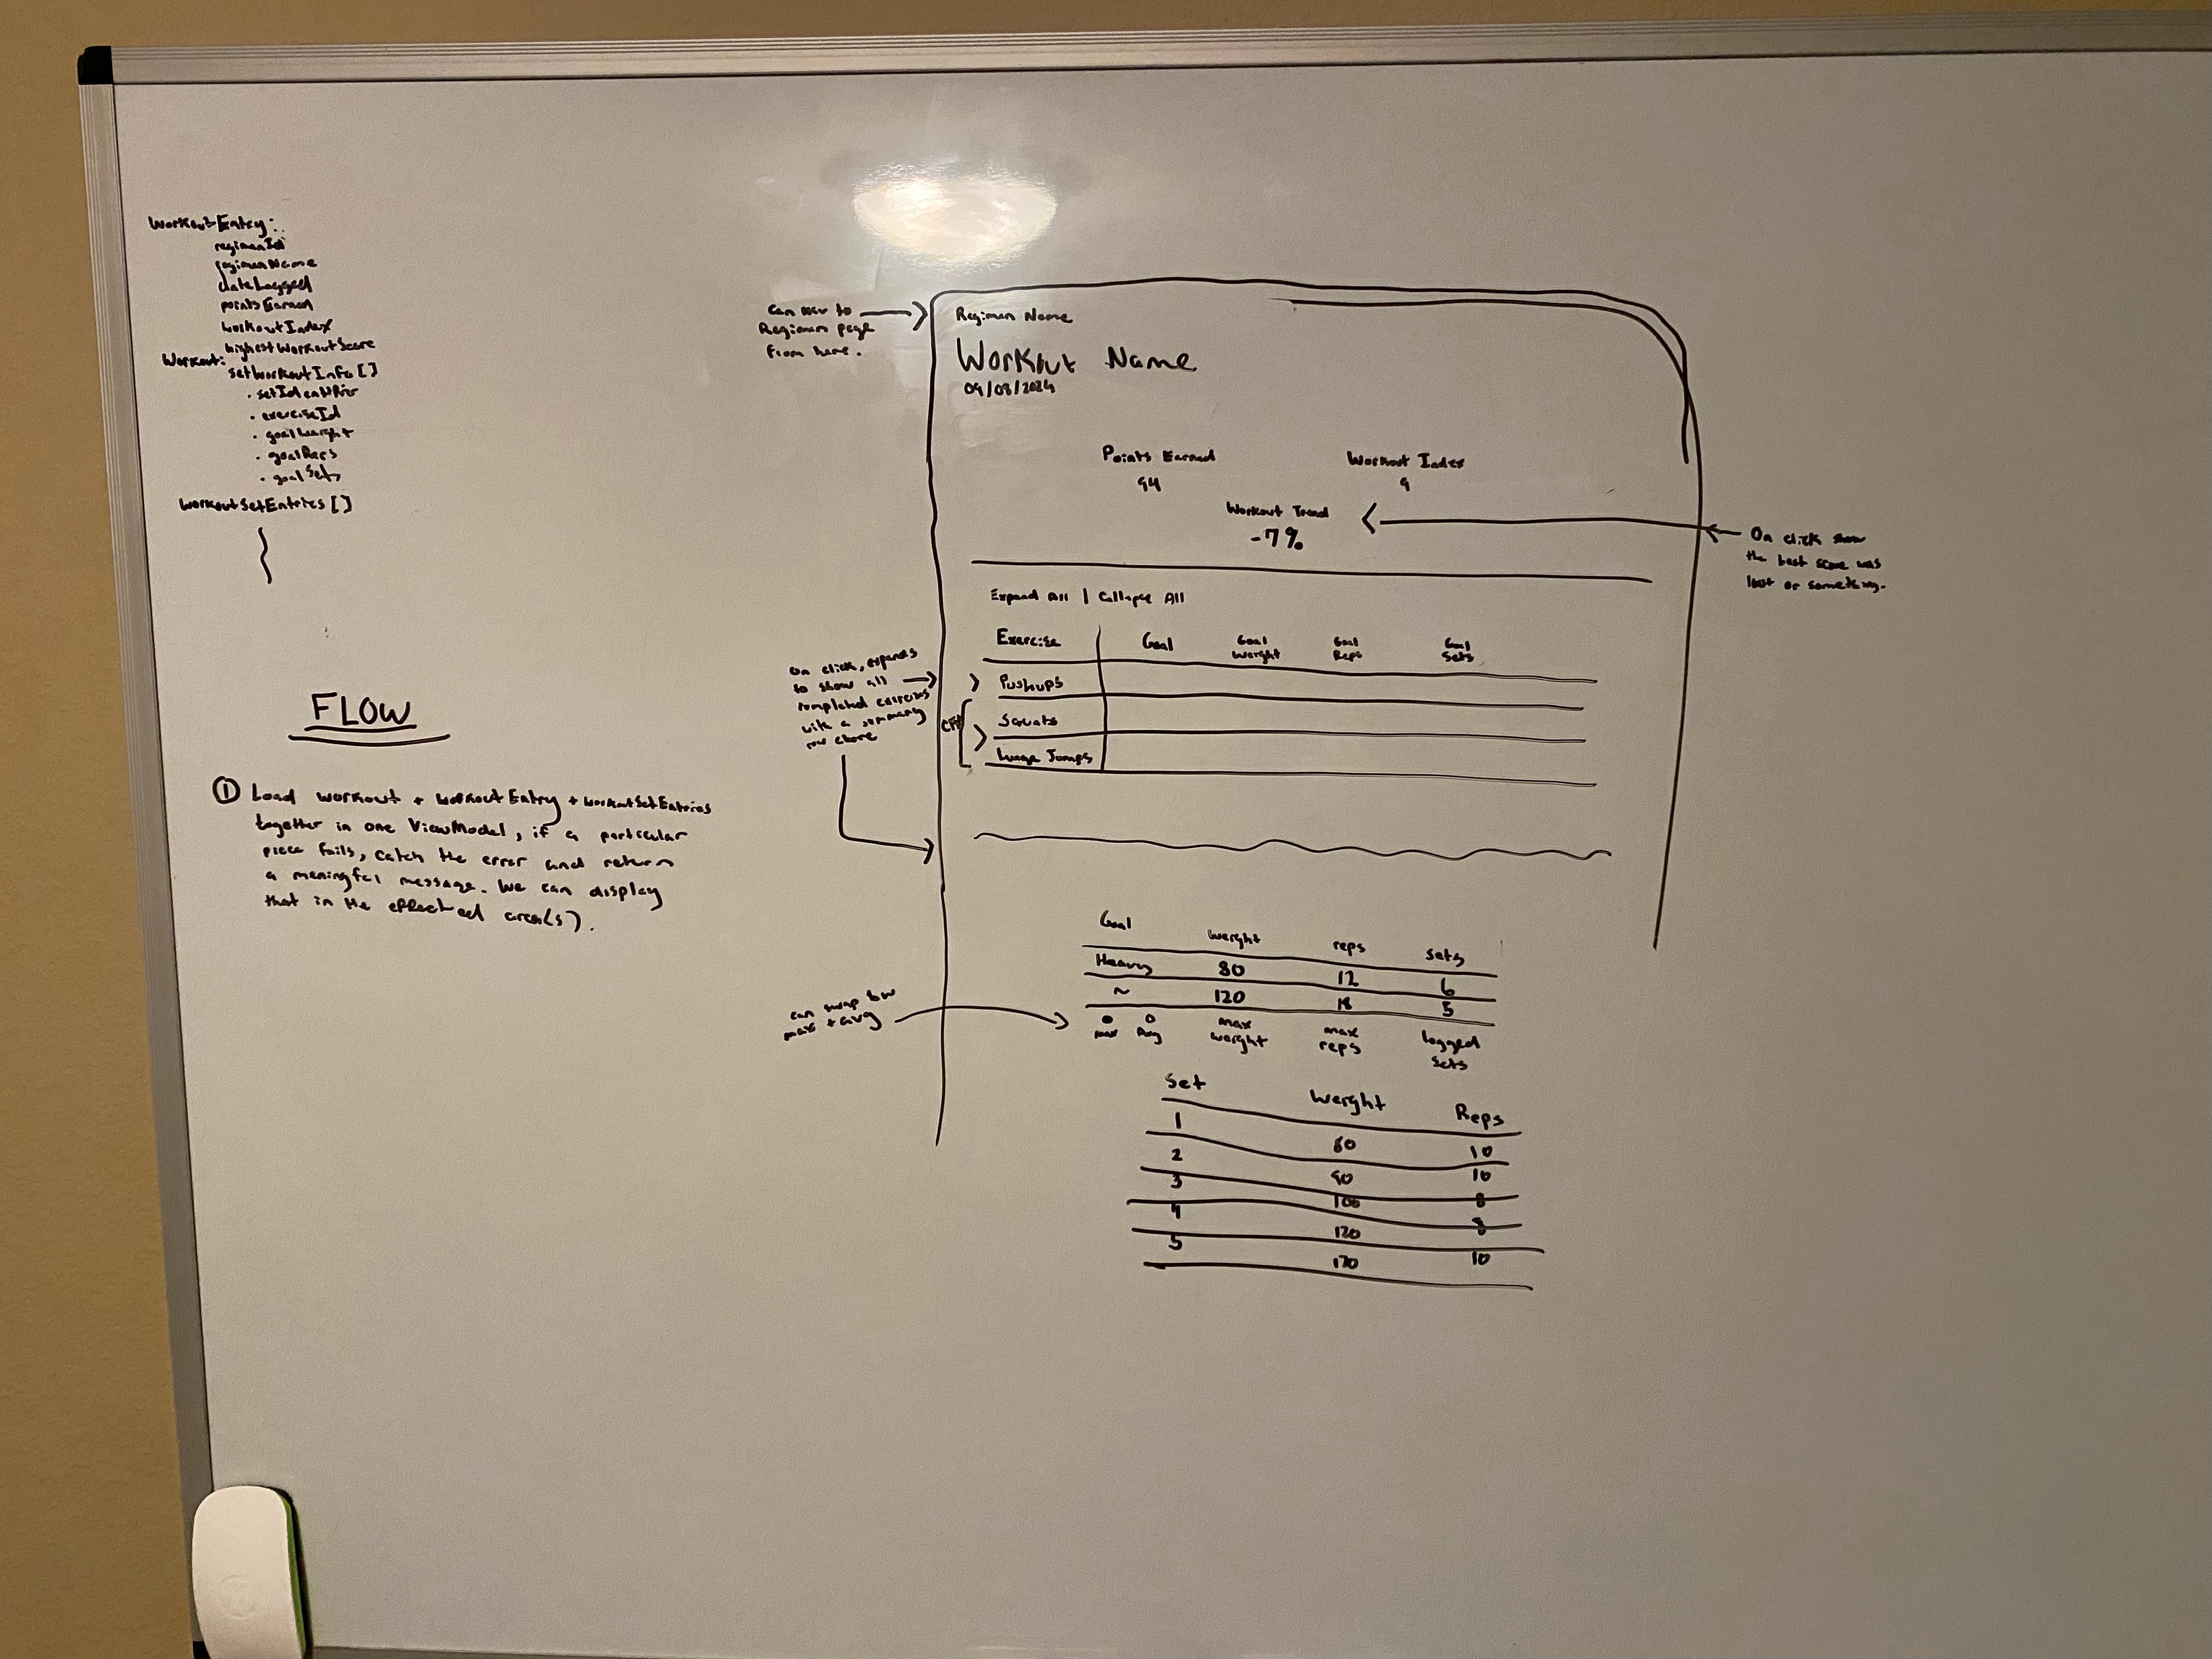 WorkoutEntry:
regimenId
regimenName
dateLogged
pointsEarned
workoutIndex
highestWorkoutScore
Workout:
setWorkoutInfo []
· setIdentifier
· exerciseId
· goalWeight
· goalReps
· goalSets
WorkoutSetEntries []
FLOW
① Load workout + WorkoutEntry + WorkoutSetEntries
together in one ViewModel, if a particular
piece fails, catch the error and return
a meningful message. We can display
that in the effected area(s).
Can nav to
Regimen page
from here.
Regimen Name
Workout Name
09/08/2024
Points Earned
94
Workout Index
9
Workout Trend
-7%
On click show
the best score was
or something.
Expand All | Collapse All
Exercise Goal Goal Weight Goal Reps Goal Sets
> Pushups
Squats
Lunge Jumps
On click, expands
to show all
completed exercises
with a summary
row above
Goal weight reps sets
Heavy 80 12 6
~ 120 18 5
max Avg max weight max reps logged sets
can swap bw
max + avg
Set Weight Reps
1 80 10
2 90 10
3 100 8
4 120 8
5 120 10